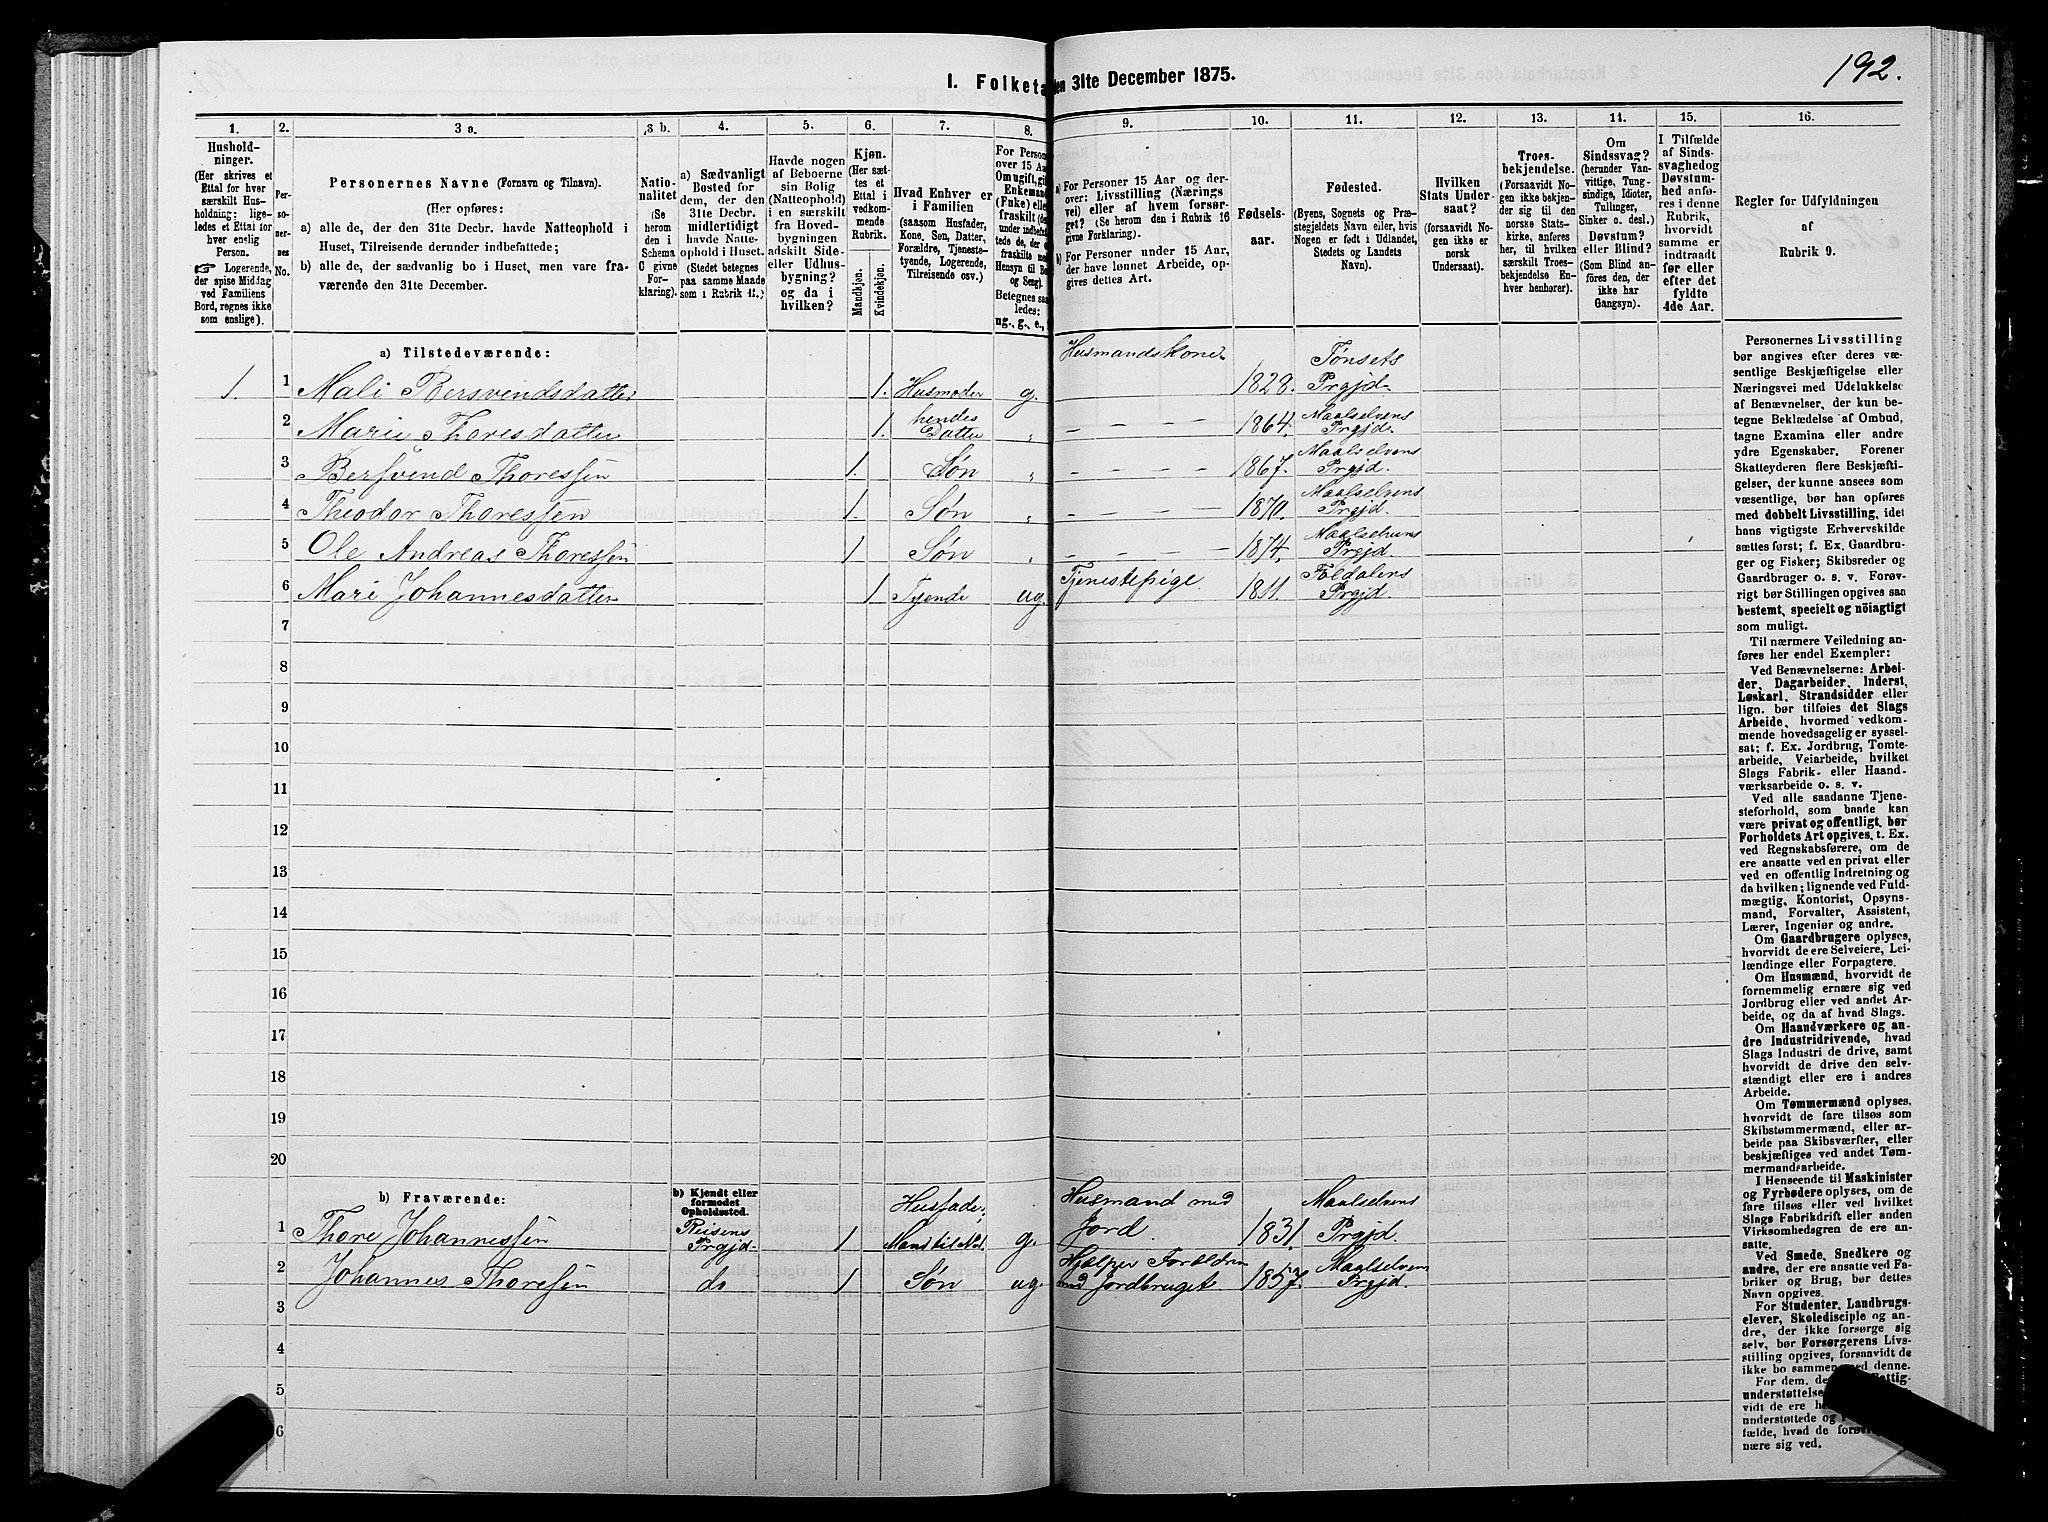 192.
I. Folketa en 31te December 1875.
1. 2. 3 a. 3 b. 4. 5. 6. 7. 8. 9. 10. 11. 12. 13. 14. 15. 16.
Hushold-
ninger.
(Her skrives et
Ettal for hver
særskilt Hus-
holdning; lige-
ledes et Ettal for
hver enslig
Person.
☞ Logerende,
der spise Middag
ved Familiens
Bord, regnes ikke
som enslige).
Per-
so-
ner-
nes
No.
Personernes Navne (Fornavn og Tilnavn).
(Her opføres:
a) alle de, der den 31te Decbr. havde Natteophold i
Huset, Tilreisende derunder indbefattede;
b) alle de, der sædvanlig bo i Huset, men vare fra-
værende den 31te December.
Natio-
nalitet
(Se
herom
den i
Schema
C givne
For-
klaring).
a) Sædvanligt
Bosted for
dem, der den
31te Decbr.
midlertidigt
havde Natte-
ophold i Huset.
(Stedet betegnes
paa samme Maade
som i Rubrik 11.)
Havde nogen
af Beboerne
sin Bolig
(Natteophold)
i en særskilt
fra Hoved-
bygningen
adskilt Side-
eller Udhus-
bygning?
og da i
hvilken?
Kjøn.
(Her sæt-
tes et
Ettal i
vedkom-
mende
Rubrik.
Mandkjøn.
Kvindekjøn.
Hvad Enhver er
i Familien
(saasom Husfader,
Kone, Søn, Datter,
Forældre, Tjeneste-
tyende, Logerende,
Tilreisende osv.)
For Person
over 15 Aa
Om ugift, gif
Enkeman
(Fnke) elle
fraskilt (de
under indbefat-
tede de, der
fraskilte me
Hensyn til Bo
og Seng).
Betegnes saa
ledes:
ug., g., e.,
a) For Personer 15 Aar og der-
over: Livsstilling (Nærings
vei) eller af hvem forsør-
get? (Se herom den i Rubrik 16
givne Forklaring).
b) For Personer under 15 Aar,
der have lønnet Arbeide, op-
gives dettes Art.
Fødsels-
aar.
Fødested.
(Byens, Sognets og Præ-
stegjeldets Navn eller, hvis
Nogen er født i Udlandet,
Stedets og Landets
Navn).
Hvilken
Stats Under-
saat?
(forsaavidt No-
gen ikke er
norsk
Undersaat).
Troes-
bekjendelse.
(Forsaavidt No-
gen ikke bekjen-
der sig til den
norske Stats-
kirke, anføres
her, til hvilken
særskilt Troes-
bekjendelse En-
hver henhører).
Om
Sindssvag?
(herunder Van-
vittige, Tung-
sindige, Idioter,
Tullinger,
Sinker o. desl.)
Døvstum?
eller Blind?
(Som Blind an-
føres den, der
ikke har
Gangsyn).
I Tilfælde
af Sinds-
svaghed og
Døvstum-
hed anfø-
res i denne
Rubrik,
hvorvidt
samme er
indtraadt
før eller
efter det
fyldte
4de Aar.
Regler for Udfyldningen
af
Rubrik 9.
a) Tilstedeværende:
1. 1 Mali Bersvendsdatter 1. Husmoder g. Husmandskone 1828. Tønsets Prgjd.
2 Marie Thoresdatter 1. hendes Datter „ - - - - 1864. Maalselvens Prgjd.
3 Bersvend Thoressen 1. Søn „ - - - - 1867. Maalselvens Prgjd.
4 Theodor Thoressen 1. Søn „ - - - - 1870. Maalselvens Prgjd.
5 Ole Andreas Thoressen 1 Søn „ - - - - 1874. Maalselvens Prgjd.
6 Mari Johannesdatter 1 Tyende ug. Tjenestepige. 1811. Foldalens Prgjd.
7
8
9
10
11
12
13
14
15
16
17
18
19
20
b) Fraværende:
b) Kjendt eller
formodet
Opholdssted.
1 Thore Johannessen Reisens Prgjd. 1 Husfader, Mand til No 1. g. Husmand med Jord. 1831. Maalselvens Prgjd.
2 Johannes Thoresen do 1 Søn ug. Hjælper Foraldren med Jordbruget. 1857. Maalselvens Prgjd.
3
4
5
6
Personernes Livsstilling
bør angives efter deres væ-
sentlige Beskjæftigelse eller
Næringsvei med Udelukkelse
af Benævnelser, der kun be-
tegne Beklædelse af Ombud,
tagne Examina eller andre
ydre Egenskaber. Forener
Skatteyderen flere Beskjæfti-
gelser, der kunne ansees som
væsentlige, bør han opføres
med dobbelt Livsstilling, idet
hans vigtigste Erhvervskilde
sættes først; f. Ex. Gaardbru-
ger og Fisker; Skibsreder og
Gaardbruger o. s. v. Forøv-
rigt bør Stillingen opgives saa
bestemt, specielt og nöiagtigt
som muligt.
Til nærmere Veiledning an-
føres her endel Exempler:
Ved Benævnelserne: Arbei-
der, Dagarbeider, Inderst,
Løskarl, Strandsidder eller
lign. bør tilføies det Slags
Arbeide, hvormed vedkom-
mende hovedsagelig er syssel-
sat; f. Ex. Jordbrug, Tomte-
arbeide, Veiarbeide, hvilket
Slags Fabrik- eller Haand-
værksarbeide o. s. v.
Ved alle saadanne Tjene-
steforhold, som baade kan
være privat og offentligt, bør
Forholdets Art opgives, t. Ex.
ved Regnskabsførere, om de
ere ansatte ved en privat eller
ved en offentlig Indretning og
da hvilken; lignende ved Fuld-
mægtig, Kontorist, Opsyns-
mand, Forvalter, Assistent,
Lærer, Ingeniør og andre.
Om Gaardbrugere oplyses,
hvorvidt de ere Selveiere, Lei-
lændinge eller Forpagtere.
Om Husmænd, hvorvidt de
fornemmelig ernære sig ved
Jordbrug eller ved andet Ar-
beide, og da af hvad Slags.
Om Haandværkere og an-
dre Industridrivende, hvad
Slags Industri de drive, samt
hvorvidt de drive den selv-
stændigt eller ere i andres
Arbeide.
Om Tømmermænd oplyses,
hvorvidt de fare tilsøs som
Skibstømmermænd, eller ar-
beide paa Skibsværfter, eller
beskjæftiges ved andet Tøm-
mermandsarbeide.
I Henseende til Maskinister
og Fyrbødere oplyses, om de
fare tilsøs eller ved hvilket
Slags Fabrikdrift eller anden
Virksomhedsgren de ere an-
satte.
Ved Smede, Snedkere og
andre, der ere ansatte ved Fa-
briker og Brug, bør dettes
Navn opgives.
For Studenter, Landbrugs-
elever, Skoledisciple og an-
dre, der ikke forsørge sig
selv, bør Forsørgerens Livs-
stilling opgives, forsaavidt de
ikke bo sammen med denne.
For dem, de Fattig-
understøttelse
vidt de ere h
understøttede og
fælde, hvad de forøv
nære sig ved.